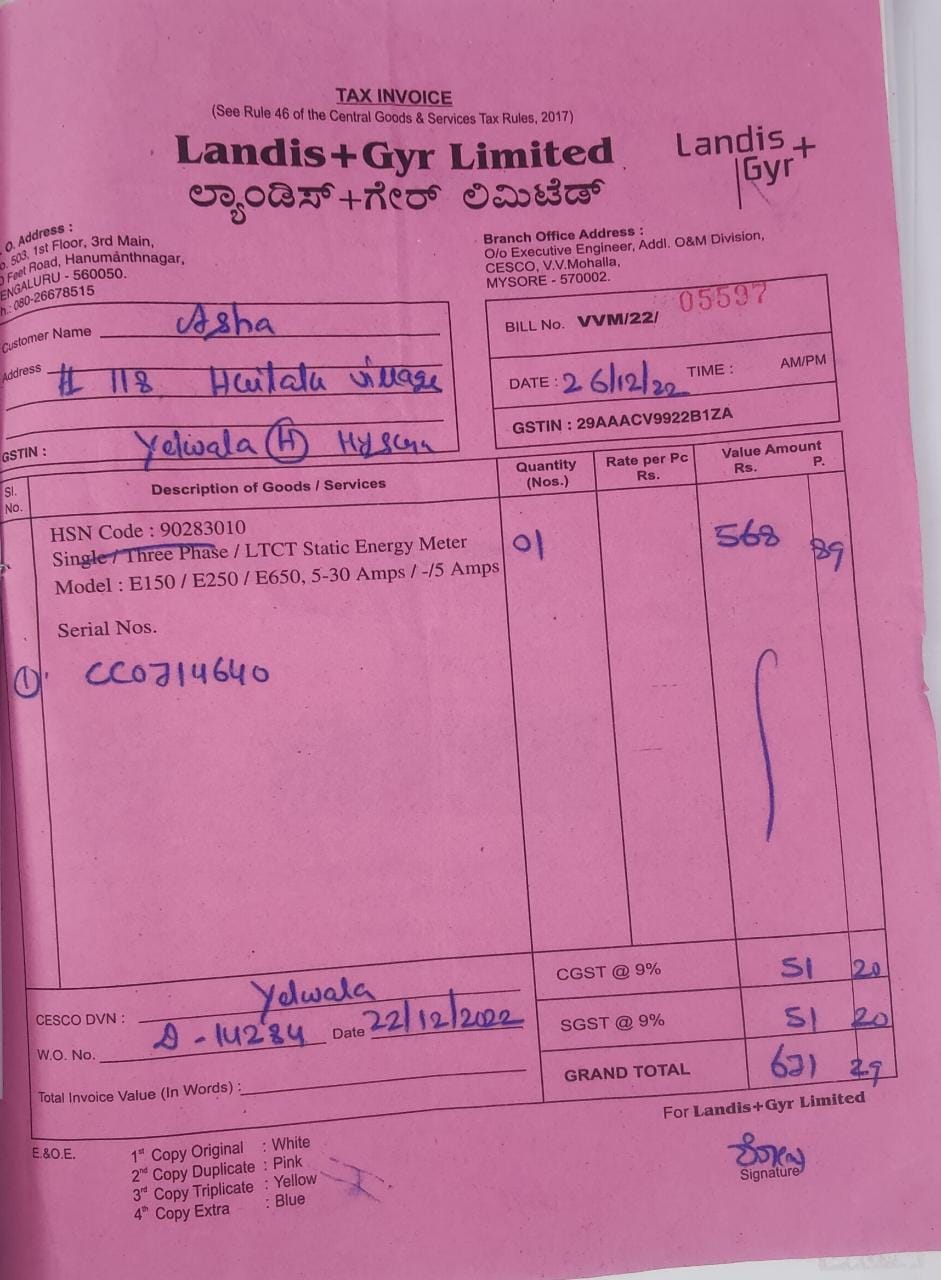 TAX INVOICE
(See Rule 46 of the Central Goods & Services Tax Rules, 2017)
Landis+Gyr Limited
ಲ್ಯಾಂಡಿಸ್+ಗೇರ್ ಲಿಮಿಟೆಡ್
Landis+
Gyr
O. Address :
503, 1st Floor, 3rd Main,
Feet Road, Hanumanthnagar,
ENGALURU - 560050.
h.: 080-26678515
Branch Office Address :
O/o Executive Engineer, Addl. O&M Division,
CESCO, V.V.Mohalla,
MYSORE - 570002.
Customer Name Asha
Address # 118 Huitalu village
Yelwala (H) Mysuru
GSTIN :
BILL No. VVM/22/ 05597
DATE : 26/12/22 TIME : AM/PM
GSTIN : 29AAACV9922B1ZA
Sl. No. Description of Goods / Services Quantity (Nos.) Rate per Pc Rs. Value Amount Rs. P.
HSN Code : 90283010
Single / Three Phase / LTCT Static Energy Meter 01 568 89
Model : E150 / E250 / E650, 5-30 Amps / -/5 Amps
Serial Nos.
① CC0714640
CGST @ 9% 51 20
SGST @ 9% 51 20
GRAND TOTAL 671 29
CESCO DVN : Yelwala
W.O. No. D-14284 Date 22/12/2022
Total Invoice Value (In Words) :
For Landis+Gyr Limited
Signature
E.&O.E.
1st Copy Original : White
2nd Copy Duplicate : Pink
3rd Copy Triplicate : Yellow
4th Copy Extra : Blue